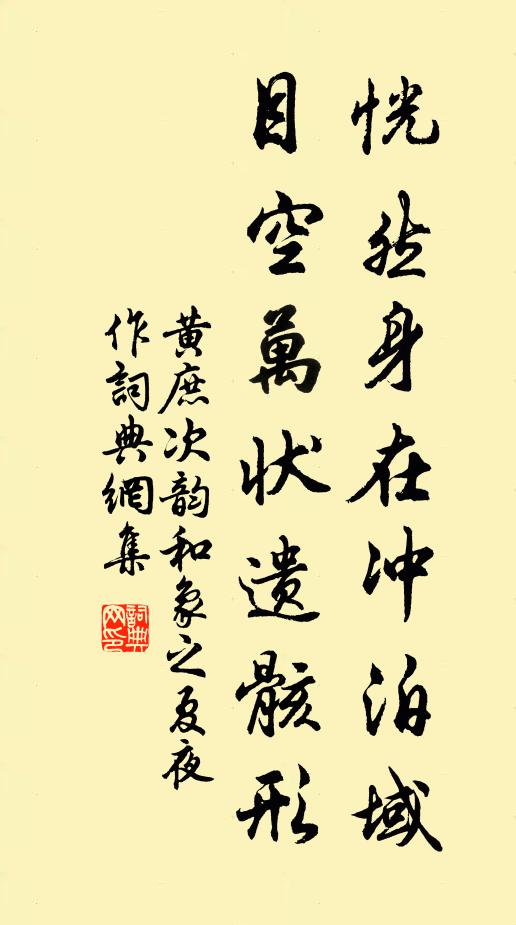 恍然身在冲泊域
目空萬状遗骸形
黄庶次韵和象之夏夜
作詞典網集
詞典网印